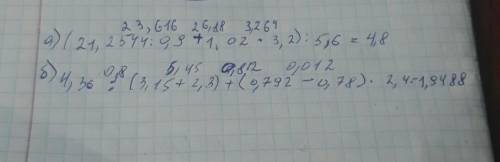 23,616 26,88 3,264
а) (21,2544 : 0,9 + 1,02 • 3,2) : 5,6 = 4,8
0,8 5,45 0,812 0,012
б) 4,36 : (3,15 + 2,3) + (0,792 - 0,78) • 2,4 = 1,9488